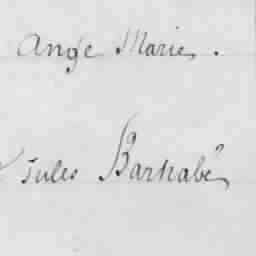 Ange Marie.
Jules Barnabé